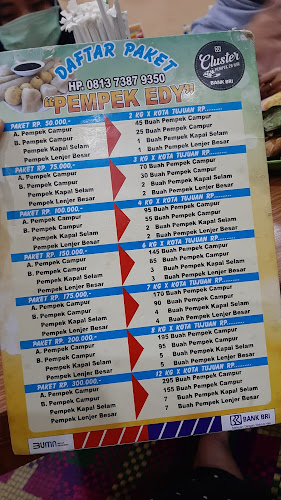 DAFTAR PAKET
HP. 0813 7387 9350
"PEMPEK EDY"
Cluster
BANK BRI
PAKET RP. 50.000,-
2 KG X KOTA TUJUAN RP.........
A. Pempek Campur
45 Buah Pempek Campur
B. Pempek Campur
25 Buah Pempek Campur
Pempek Kapal Selam
1 Buah Pempek Kapal Selam
Pempek Lenjer Besar
1 Buah Pempek Lenjer Besar
PAKET RP. 75.000,-
3 KG X KOTA TUJUAN RP.........
A. Pempek Campur
70 Buah Pempek Campur
B. Pempek Campur
30 Buah Pempek Campur
Pempek Kapal Selam
2 Buah Pempek Kapal Selam
Pempek Lenjer Besar
2 Buah Pempek Lenjer Besar
PAKET RP. 100.000,-
4 KG X KOTA TUJUAN RP.........
A. Pempek Campur
95 Buah Pempek Campur
B. Pempek Campur
55 Buah Pempek Campur
Pempek Kapal Selam
2 Buah Pempek Kapal Selam
Pempek Lenjer Besar
2 Buah Pempek Lenjer Besar
PAKET RP. 150.000,-
6 KG X KOTA TUJUAN RP.........
A. Pempek Campur
145 Buah Pempek Campur
B. Pempek Campur
Buah Pempek Campur
Pempek Kapal Selam
3 Buah Pempek Kapal Selam
Pempek Lenjer Besar
3 Buah Pempek Lenjer Besar
PAKET RP. 175.000,-
7 KG X KOTA TUJUAN RP.........
A. Pempek Campur
170 Buah Pempek Campur
B. Pempek Campur
90 Buah Pempek Campur
Pempek Kapal Selam
4 Buah Pempek Kapal Selam
Pempek Lenjer Besar
4 Buah Pempek Lenjer Besar
PAKET RP. 200.000,-
8 KG X KOTA TUJUAN RP.........
A. Pempek Campur
195 Buah Pempek Campur
B. Pempek Campur
95 Buah Pempek Campur
Pempek Kapal Selam
5 Buah Pempek Kapal Selam
Pempek Lenjer Besar
5 Buah Pempek Lenjer Besar
PAKET RP. 300.000,-
12 KG X KOTA TUJUAN RP.........
A. Pempek Campur
295 Buah Pempek Campur
B. Pempek Campur
155 Buah Pempek Campur
Pempek Kapal Selam
7 Buah Pempek Kapal Selam
Pempek Lenjer Besar
7 Buah Pempek Lenjer Besar
BUMN
BANK BRI